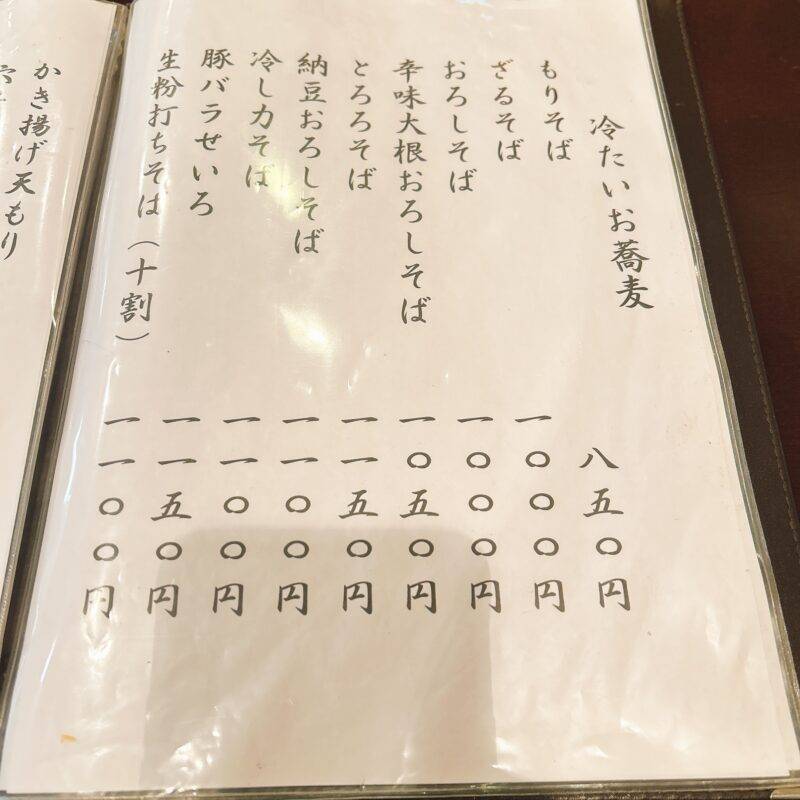 冷たいお蕎麦
もりそば 八五〇円
ざるそば 一〇〇〇円
おろしそば 一〇〇〇円
辛味大根おろしそば 一〇五〇円
とろろそば 一一五〇円
納豆おろしそば 一一〇〇円
冷し力そば 一一〇〇円
豚バラせいろ 一一五〇円
生粉打ちそば(十割) 一一〇〇円
かき揚げ天もり